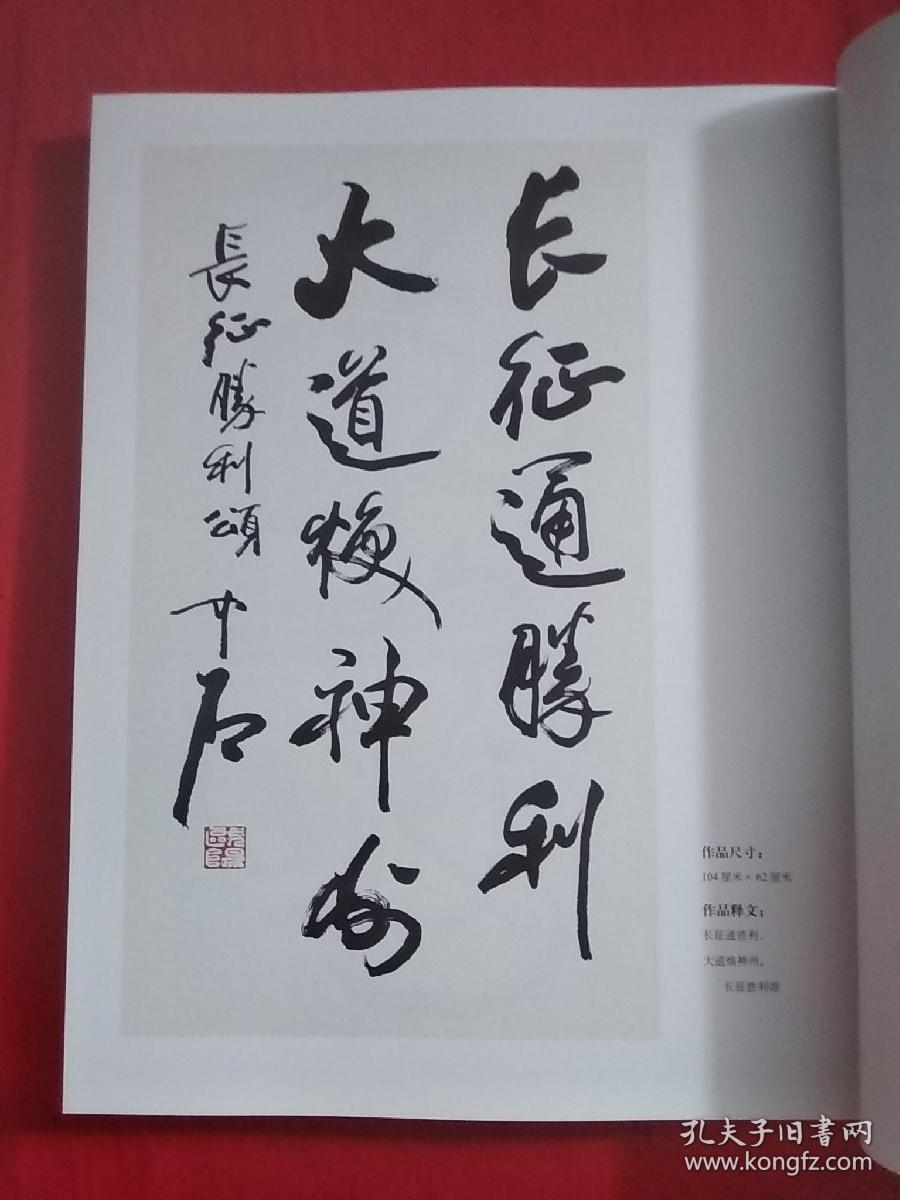 长征通勝利
大道焕神州
長征勝利頌
中石
作品尺寸:
104厘米×62厘米
作品释文:
长征通胜利,
大道焕神州。
长征胜利颂
孔夫子旧書网
www.kongfz.com